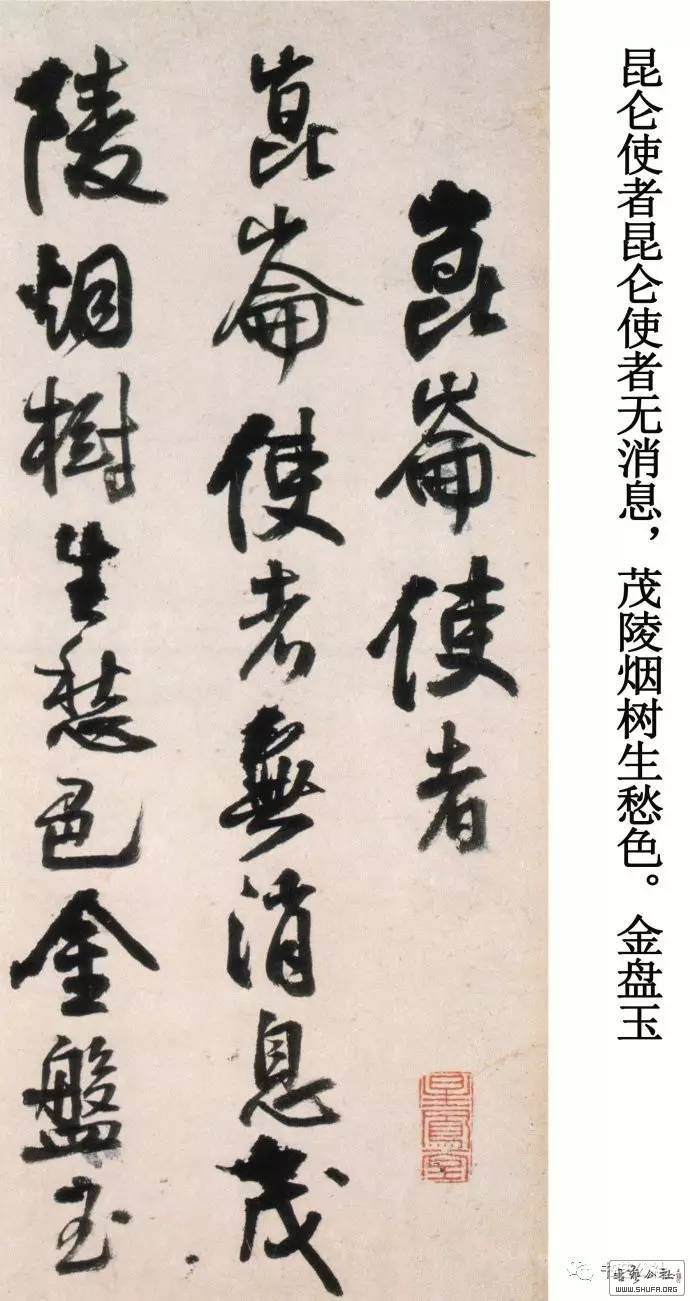 昆仑使者昆仑使者无消息，茂陵烟树生愁色。金盘玉
崑崙使者
崑崙使者無消息茂
陵烟樹生愁色金盤玉
WWW.SHUFA.ORG